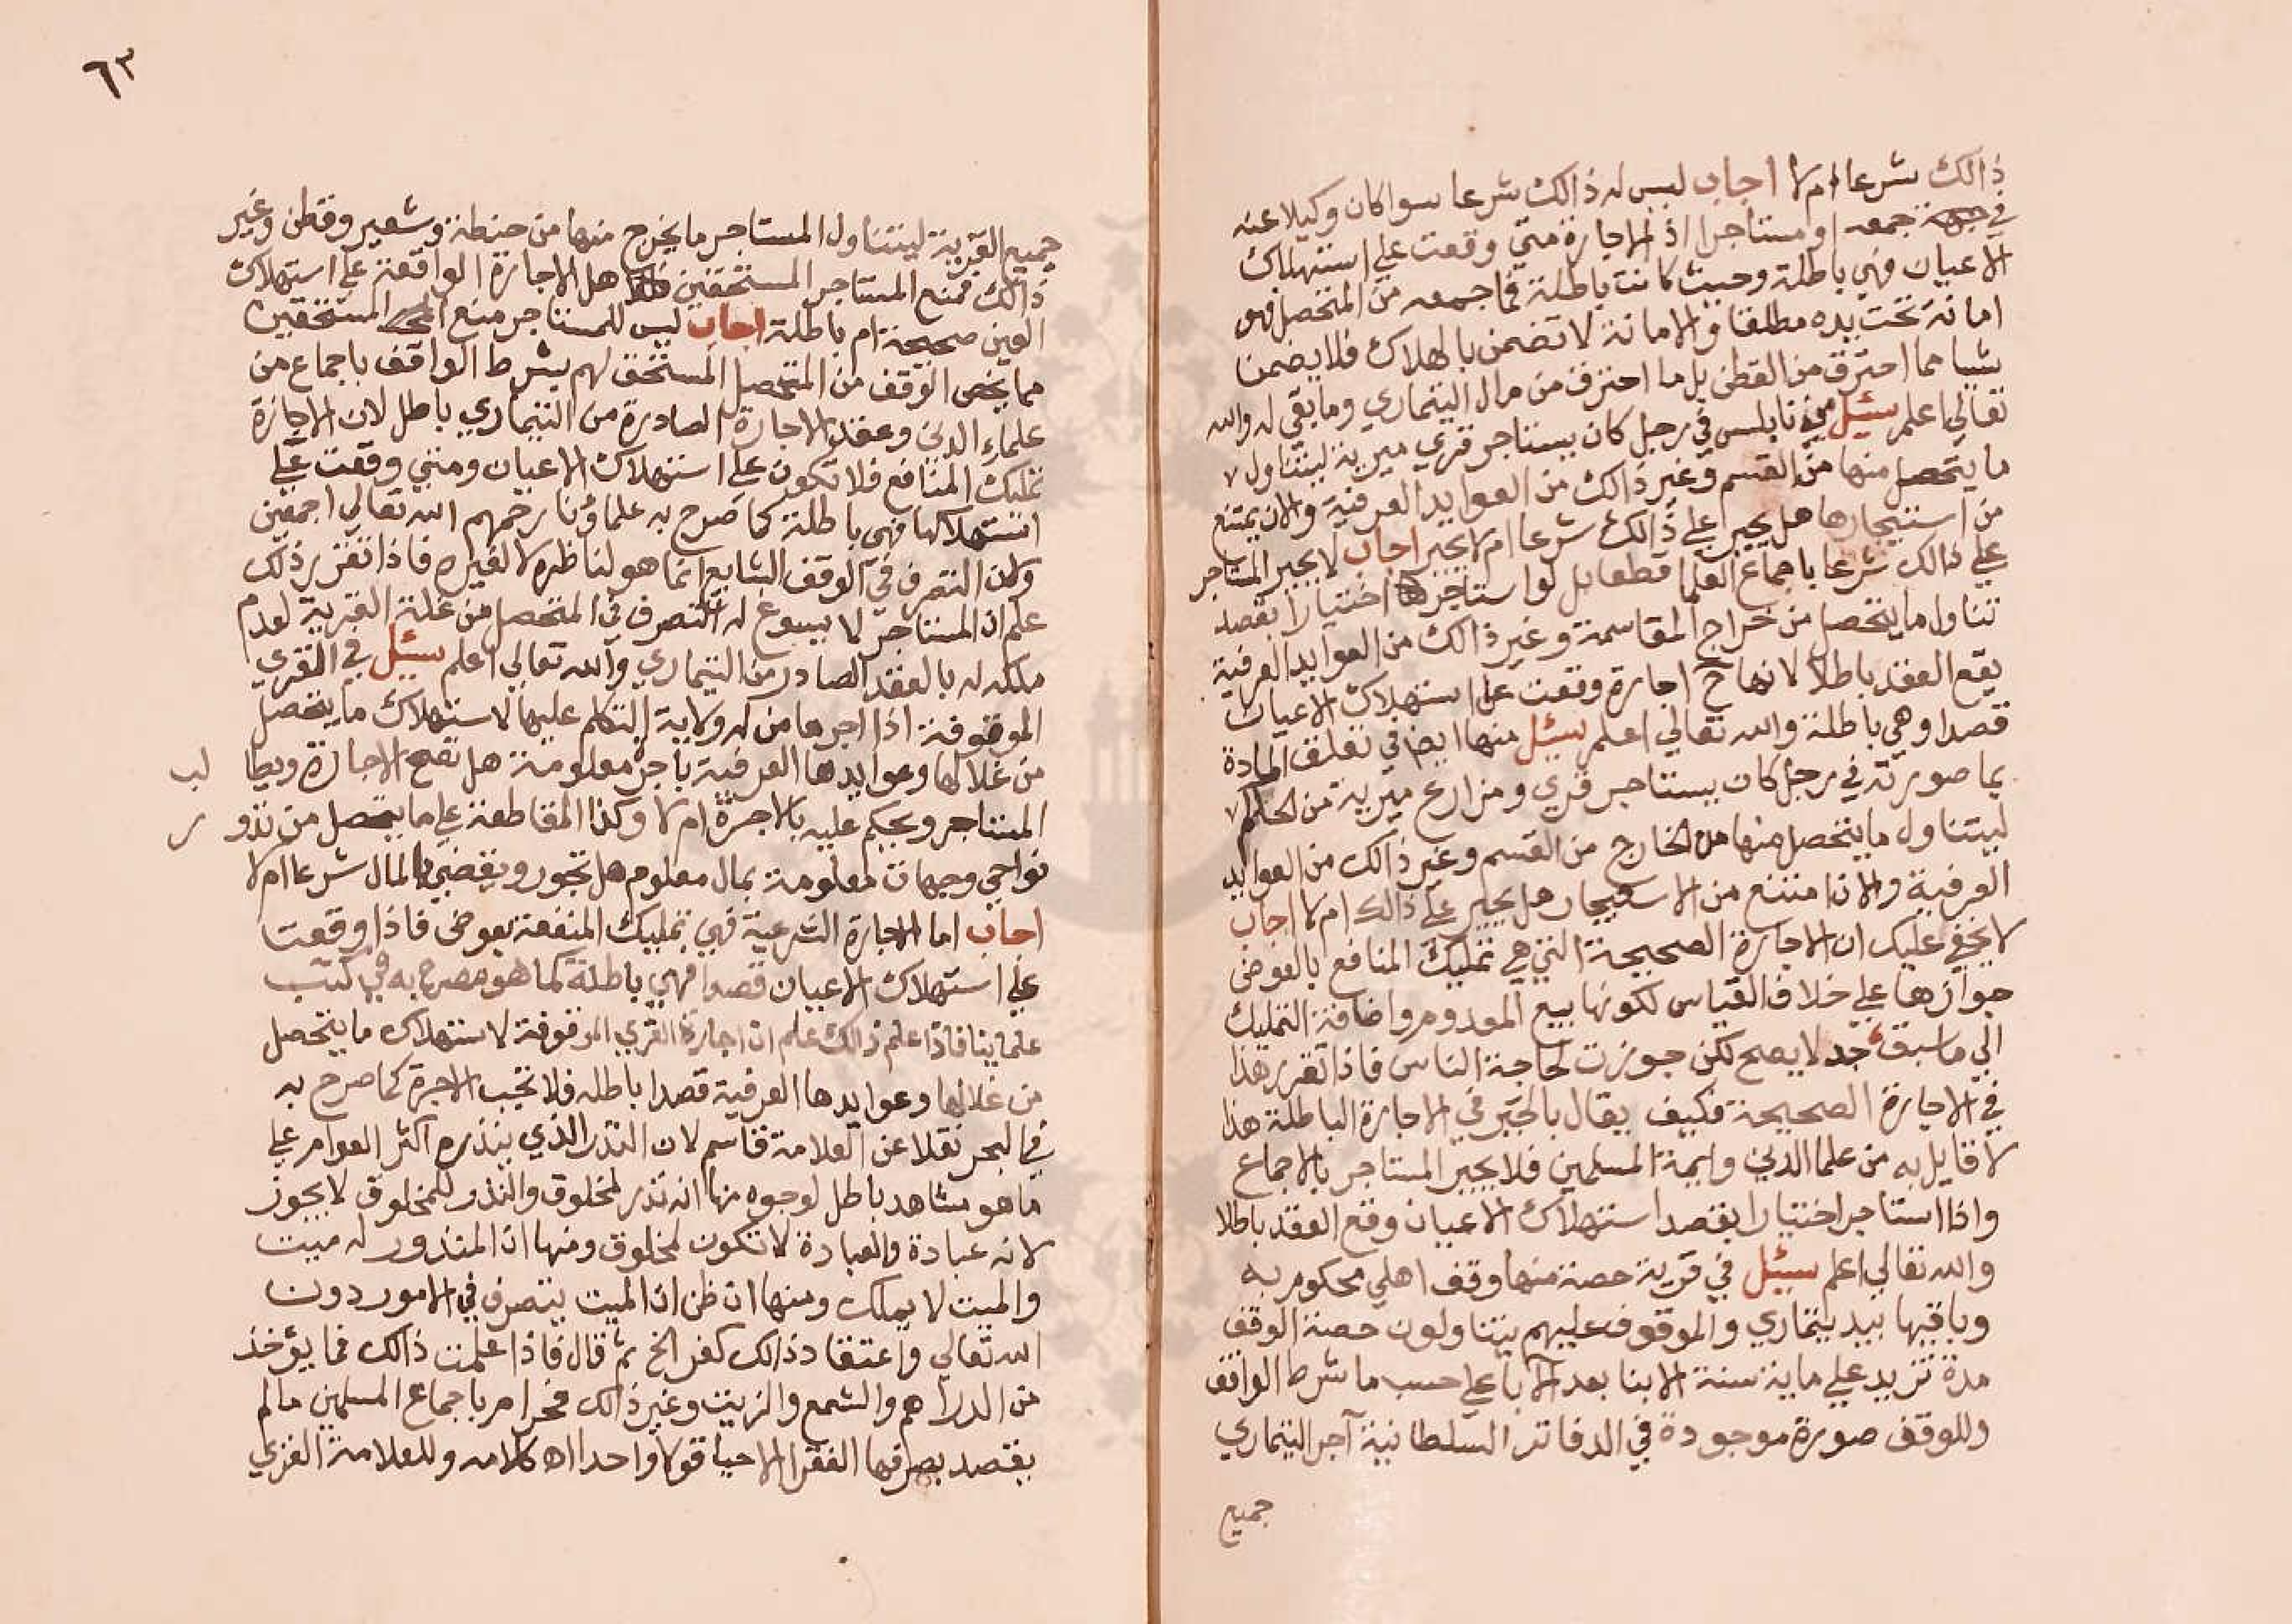 ذالك شرعا ام لا اجاب ليس له ذالك شرعا سوا كان وكيلا عنه
في جمعه او مستاجرا اذ الاجارة متي وقعت علي استهلاك
الاعيان فهي باطلة وحيث كانت باطلة فما جمعه من المتحصل فهو
امانة تحت يده مطلقا والامانة لا تضمن بالهلاك فلا يضمن
شيا مما احترق من القطن بل ما احترق من مال التيماري وما بقي له والله
تعالي اعلم سئيل من نابلس في رجل كان يستاجر قري ميرية ليتناول
ما يتحصل منها من القسم وغير ذالك من العوايد العرفية والان يمتنع
من استيجارها هل يجبر علي ذالك شرعا ام لا يجبر اجاب لا يجبر المستاجر
علي ذالك شرعا باجماع العلما قطعا بل لو استاجرها اختيارا بقصد
تناول ما يتحصل من خراج المقاسمة وغير ذالك من العوايد العرفية
يقع العقد باطلا لانها ح اجارة وقعت علي استهلاك الاعيان
قصدا وهي باطلة والله تعالي اعلم سيئل منها ايضا في تعلق المادة
بما صورته في رجل كان يستاجر قري ومزارع ميرية من الحكام
ليتناول ما يتحصل منها من الخارج من القسم وغير ذالك من العوايد
العرفية والان امتنع من الاستيجار هل يجبر علي ذالك ام لا اجاب
لا يخفي عليك ان الاجارة الصحيحة التي هي تمليك المنافع بالعوض
جوازها علي خلاف القياس لكونها بيع المعدوم واضافة التمليك
الي ما سيوجد لا يصح لكن جوزت لحاجة الناس فاذا تقرر هذا
في الاجارة الصحيحة فكيف يقال بالجبر في الاجارة الباطلة هذا
لا قايل به من علما الدين وايمة المسلمين فلا يجبر المستاجر بالاجماع
واذا استاجر اختيارا بقصد استهلاك الاعيان وقع العقد باطلا
والله تعالي اعلم سيئل في قرية حصة منها وقف اهلي محكوم به
وباقيها بيد تيماري والموقوف عليهم يتناولون حصة الوقف
مدة تزيد علي ماية سنة الابنا بعد الابا علي حسب ما شرط الواقف
وللوقف صورة موجودة في الدفاتر السلطانية آجر التيماري
جميع
٦٣
جميع القرية ليتناول المستاجر ما يخرج منها من حنطة وشعير وقطن وغير
ذالك فمنع المستاجر المستحقين هل الاجارة الواقعة علي استهلاك
العين صحيحة ام باطلة اجاب ليس للمستاجر منع المستحقين
مما يخص الوقف من المتحصل المستحق لهم بشرط الواقف باجماع من
علماء الدين وعقد الاجارة الصادرة من التيماري باطل لان الاجارة
تمليك المنافع فلا تكون علي استهلاك الاعيان ومتي وقعت علي
استهلاكها فهي باطلة كما صرح به علماؤنا رحمهم الله تعالي اجمعين
ولان التصرف في الوقف الشايع انما هو لناظره لا لغيره فاذا تقرر ذلك
علم ان المستاجر لا يسوغ له التصرف في المتحصل من غلة القرية لعدم
ملكه له بالعقد الصادر من التيماري والله تعالي اعلم سيئل في القري
الموقوفة اذا اجرها من له ولاية التكلم عليها لاستهلاك ما يتحصل
من غلالها وعوايدها العرفية باجرة معلومة هل تصح الاجازة ويطا لب
المستاجر ويحكم عليه بالاجرة ام لا وكذا المقاطعة علي ما يتحصل من نذو ر
نواحي وجهات معلومة بمال معلوم هل تجوز ويقضي بالمال شرعا ام لا
اجاب اما الاجارة الشرعية فهي تمليك المنفعة بعوض فاذا وقعت
علي استهلاك الاعيان قصدا فهي باطلة كما هو مصرح به في كتب
علماينا فاذا علم ذالك علم ان اجارة القري الموقوفة لاستهلاك ما يتحصل
من غلالها وعوايدها العرفية قصدا باطله فلا تجب الاجرة كما صرح به
في البحر نقلا عن العلامة قاسم لان النذر الذي ينذره اكثر العوام علي
ما هو مشاهد باطل لوجوه منها انه نذر لمخلوق والنذر للمخلوق لا يجوز
لانه عبادة والعبادة لا تكون لمخلوق ومنها ان المنذور له ميت
والميت لا يملك ومنها ان ظن ان الميت يتصرف في الامور دون
الله تعالي واعتقاد ذالك كفر الخ ثم قال فاذا علمت ذالك فما يؤخذ
من الدراهم والشمع والزيت وغير ذالك فحرام باجماع المسلمين مالم
يقصد بصرفها الفقرا الاحيا قولا واحدا اه كلامه وللعلامة الغزي